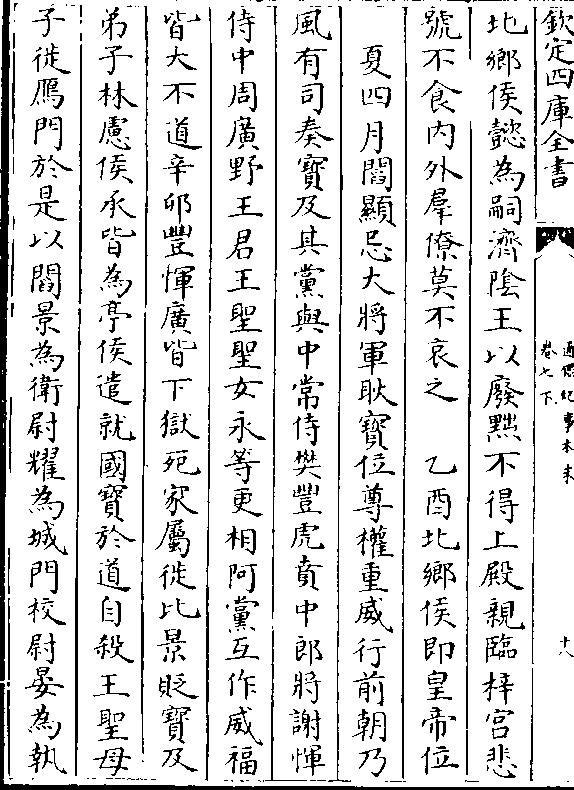 欽定四庫全書
通鑑紀事本末
卷七下
十八
北鄉侯懿為嗣濟陰王以廢黜不得上殿親臨梓宮悲
號不食内外羣僚莫不哀之　乙酉北鄉侯即皇帝位
夏四月閻顯忌大將軍耿寶位尊權重威行前朝乃
風有司奏寶及其黨與中常侍樊豐虎賁中郎將謝惲
侍中周廣野王君王聖聖女永等更相阿黨互作威福
皆大不道辛卯豐惲廣皆下獄死家屬徙比景貶寶及
弟子林慮侯承皆為亭侯遣就國寶於道自殺王聖母
子徙鴈門於是以閻景為衛尉耀為城門校尉晏為執